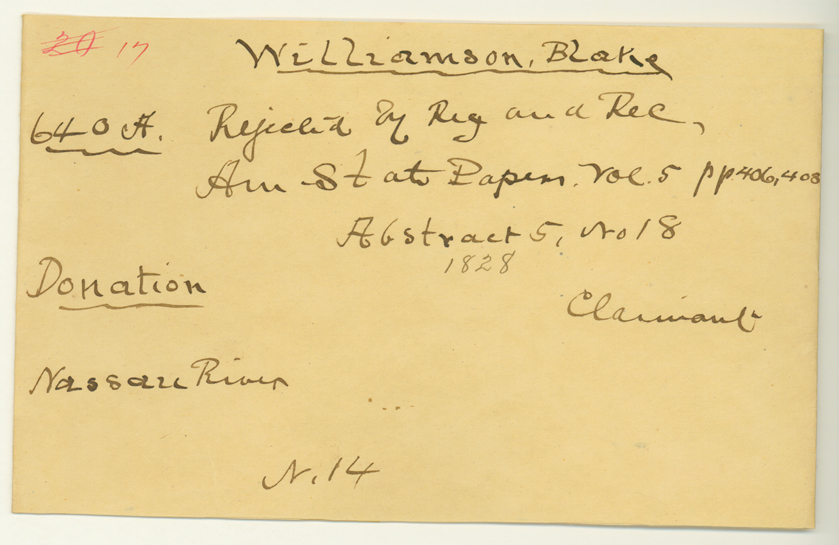 20 17
Williamson, Blake
640 A. Rejected by Reg and Rec,
Am State Papers. Vol. 5 pp. 406, 408
Abstract 5, No 18
1828
Donation
Claimant
Nassau River
N. 14